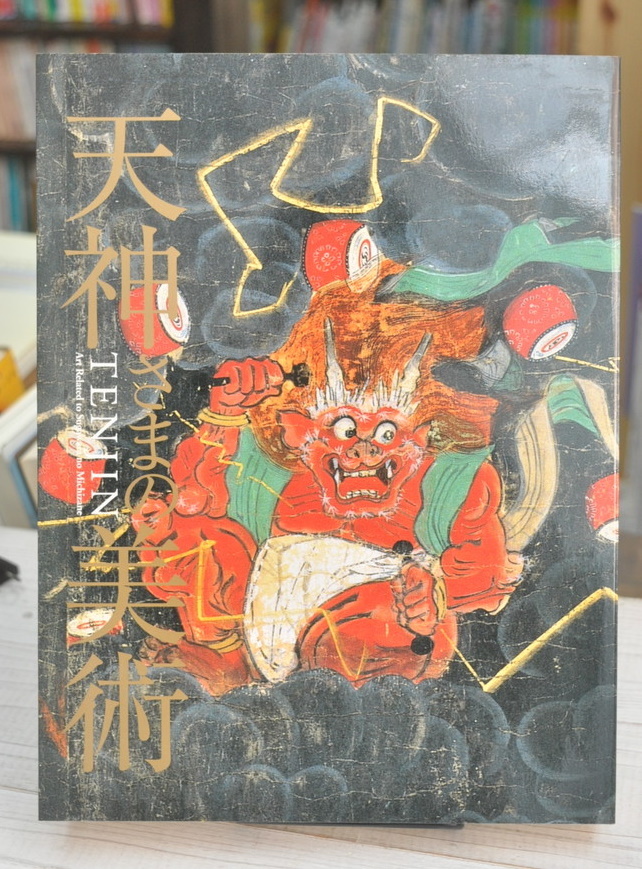 天神さまの美術
TENJIN
Art Related to Sugawarano Michizane